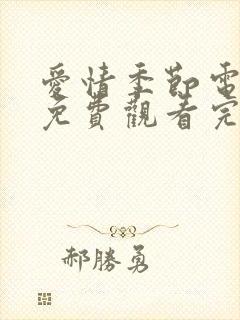 愛情季節電
免費觀看完
郝勝勇